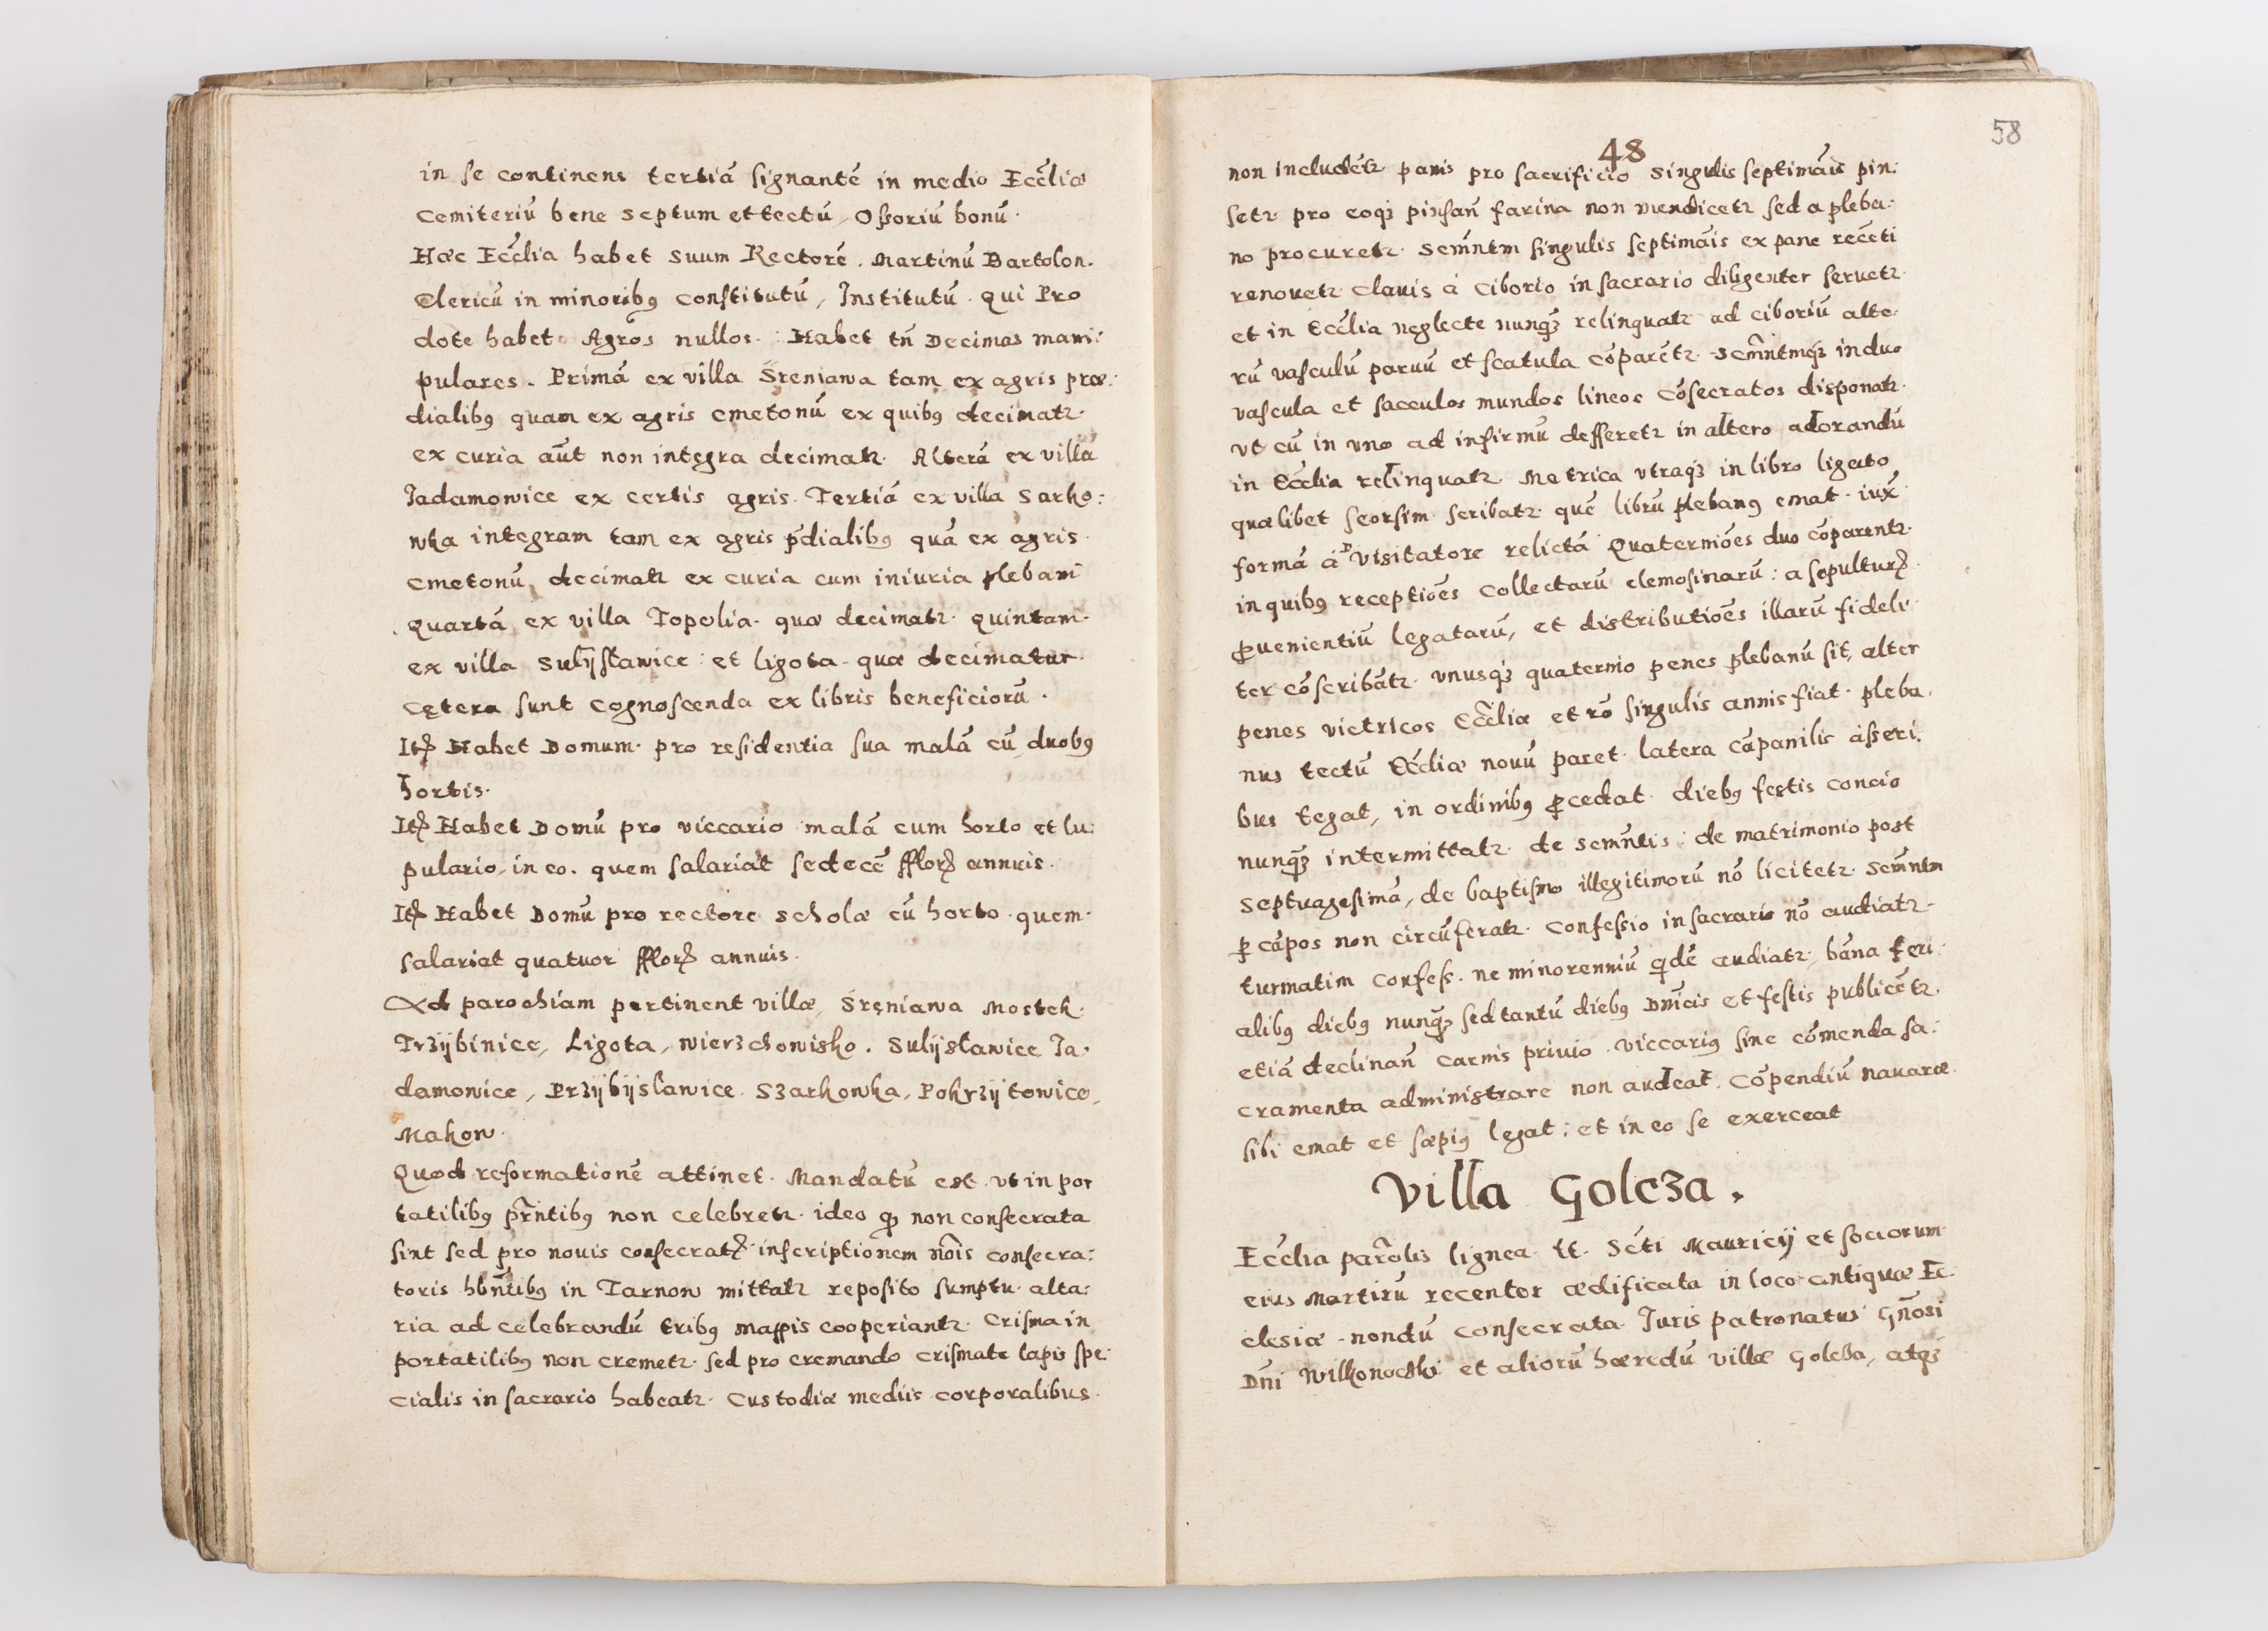 in se continens tertiā signantē in medio Eccłiæ
Cemiteriū bene septum et tectū, Ossoriū bonū.
Hæc Eccłia habet suum Rectorē. Martinū Bartolon.
Clericū in minoribꝰ constitutū, Institutū. qui Pro
dote habet Agros nullos. Habet tn̄ Decimas mani:
pulares. Primā ex villa Śreniawa tam ex agris præ:
dialibꝰ quam ex agris cmetonū ex quibꝰ decimatꝛ.
ex curia aūt non integra decimatꝛ. Alterā ex villa
Jadamowice ex certis agris. Tertiā ex villa Sarko:
wka integram tam ex agris p̄dialibꝰ quā ex agris
cmetonū, decimatꝛ ex curia cum iniuria plebani
Quartā ex villa Topolia. quæ decimatꝛ. Quintam.
ex villa Sulÿsławice: et ligota. quæ decimatur.
Cętera sunt cognoscenda ex libris beneficiorū.
Itꝫ Habet Domum. pro residentia sua malā cū duobꝰ
hortis.
Itꝫ Habet Domū pro viccario malā cum horto et lu:
pulario, in eo. quem salariat sedecē fflorꝫ annuis.
Itꝫ Habet Domū pro rectore scholæ cū horto. quem.
salariat quatuor fflorꝫ annuis.
Ad parochiam pertinent villæ, Śręniawa Mostek.
Trzÿbinice, Ligota, wierzchowisko. Sulÿsławice Ja.
damowice, Przÿbÿsławice. Szarkowka, Pokrzÿwice,
Makow.
Quod reformationē attinet. Mandatū est. vt in por
tatilibꝰ pr̄ntibꝰ non celebretꝛ. ideo ꝙ non consecrata
sint sed pro nouis consecratꝫ. inscriptionem nōis consecra:
toris hbn̄tibꝰ in Tarnow mittatꝛ reposito sumptu. alta:
ria ad celebrandū tribꝰ mappis cooperiantꝛ. Crisma in
portatilibꝰ non cremetꝛ. sed pro cremando crismate lapis spe:
cialis in sacrario habeatꝛ. Custodiæ mediis corporalibus.
58
48
non includētꝛ panis pro sacrificio singulis septimāis pin:
setꝛ pro eoqꝫ pinsan̄ farina non mendicetꝛ sed a pleba:
no procuretꝛ. Semn̄tm singulis septimāis ex pane recēti
renouetꝛ Clauis à Ciborio in sacrario diligenter seruetꝛ.
et in Eccłia neglecte nunqꝫ relinquatꝛ ad ciboriū alte.
rū vasculū paruū et scatula cōparētꝛ. Semn̄tmqꝫ in duo
vascula et sacculos mundos lineos cōsecratos disponatꝛ.
vt cū in vno ad infirmū defferetꝛ in altero adorandū
in Eccłia relinquatꝛ Metrica vtraqꝫ in libro ligato
quælibet seorsim scribatꝛ. quē librū plebanꝰ emat. iux̄
formā à D Visitatore relictā Quaterniōes duo cōparentꝛ.
in quibꝰ receptiōes collectarū elemosinarū: a sepulturꝫ
ꝓuenientiū legatarū, et distributiōes illarū fideli.
ter cōscribātꝛ. vnusqꝫ quaternio penes plebanū sit, alter
penes victricos Eccłiæ et rō singulis annis fiat. pleba.
nus tectū Eccłiæ nouū paret. latera cāpanilis asseri.
bus tegat, in ordinibꝰ ꝓcedat. diebꝰ festis concio
nunqꝫ intermittatꝛ. de semn̄tis: de matrimonio post
septuagesimā, de baptismo illegitimorū nō licitetꝛ. Semn̄tm
ꝑ cāpos non circūferatꝛ. Confessio in sacrario nō audiatꝛ.
turmatim confess. ne minorenniū qidē audiatꝛ, bāna feri.
alibꝰ diebꝰ nunqꝫ sed tantū diebꝰ Dn̄icis et festis publicētꝛ.
etiā declinan̄ carnis priuio. Viccariꝰ sine cōmenda sa:
cramenta administrare non audeat. Cōpendiū nauaræ.
sibi emat et sæpiꝰ legat: et in eo se exerceat
Villa Golcza.
Eccłia parōlis lignea. tt. Scti Mauricÿ et sociorum
eius Martirū recenter ædificata in loco antiquæ Ec.
clesiæ. nondū consecrata. Juris patronatus Gn̄osi
Dn̄i Wilkonocski et aliorū hæredū villæ Golcza, atqꝫ